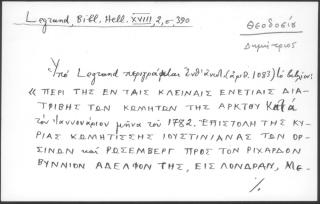 Legrand, Bibl. Hell. XVIII, 2, σ. 390
Θεοδοσίου
Δημήτριος
Ὑπό Legrand περιγράφεται (ἀριθ. 1083) τό βιβλίον:
« ΠΕΡΙ ΤΗΣ ΕΝ ΤΑΙΣ ΚΛΕΙΝΑΙΣ ΕΝΕΤΙΑΙΣ ΔΙΑ-
ΤΡΙΒΗΣ ΤΩΝ ΚΟΜΗΤΩΝ ΤΗΣ ΑΡΚΤΟΥ Κατά
τόν Ἰαννουάριον μῆνα τοῦ 1782. ΕΠΙΣΤΟΛΗ ΤΗΣ ΚΥ-
ΡΙΑΣ ΚΟΜΗΤΙΣΣΗΣ ΙΟΥΣΤΙΝΙΑΝΑΣ ΤΩΝ ΟΡ-
ΣΙΝΩΝ καί ΡΩΣΕΜΒΕΡΓ ΠΡΟΣ ΤΟΝ ΡΙΧΑΡΔΟΝ
ΒΥΝΝΙΟΝ ΑΔΕΛΦΟΝ ΤΗΣ, ΕΙΣ ΛΟΝΔΡΑΝ, ΜΕ-
./.